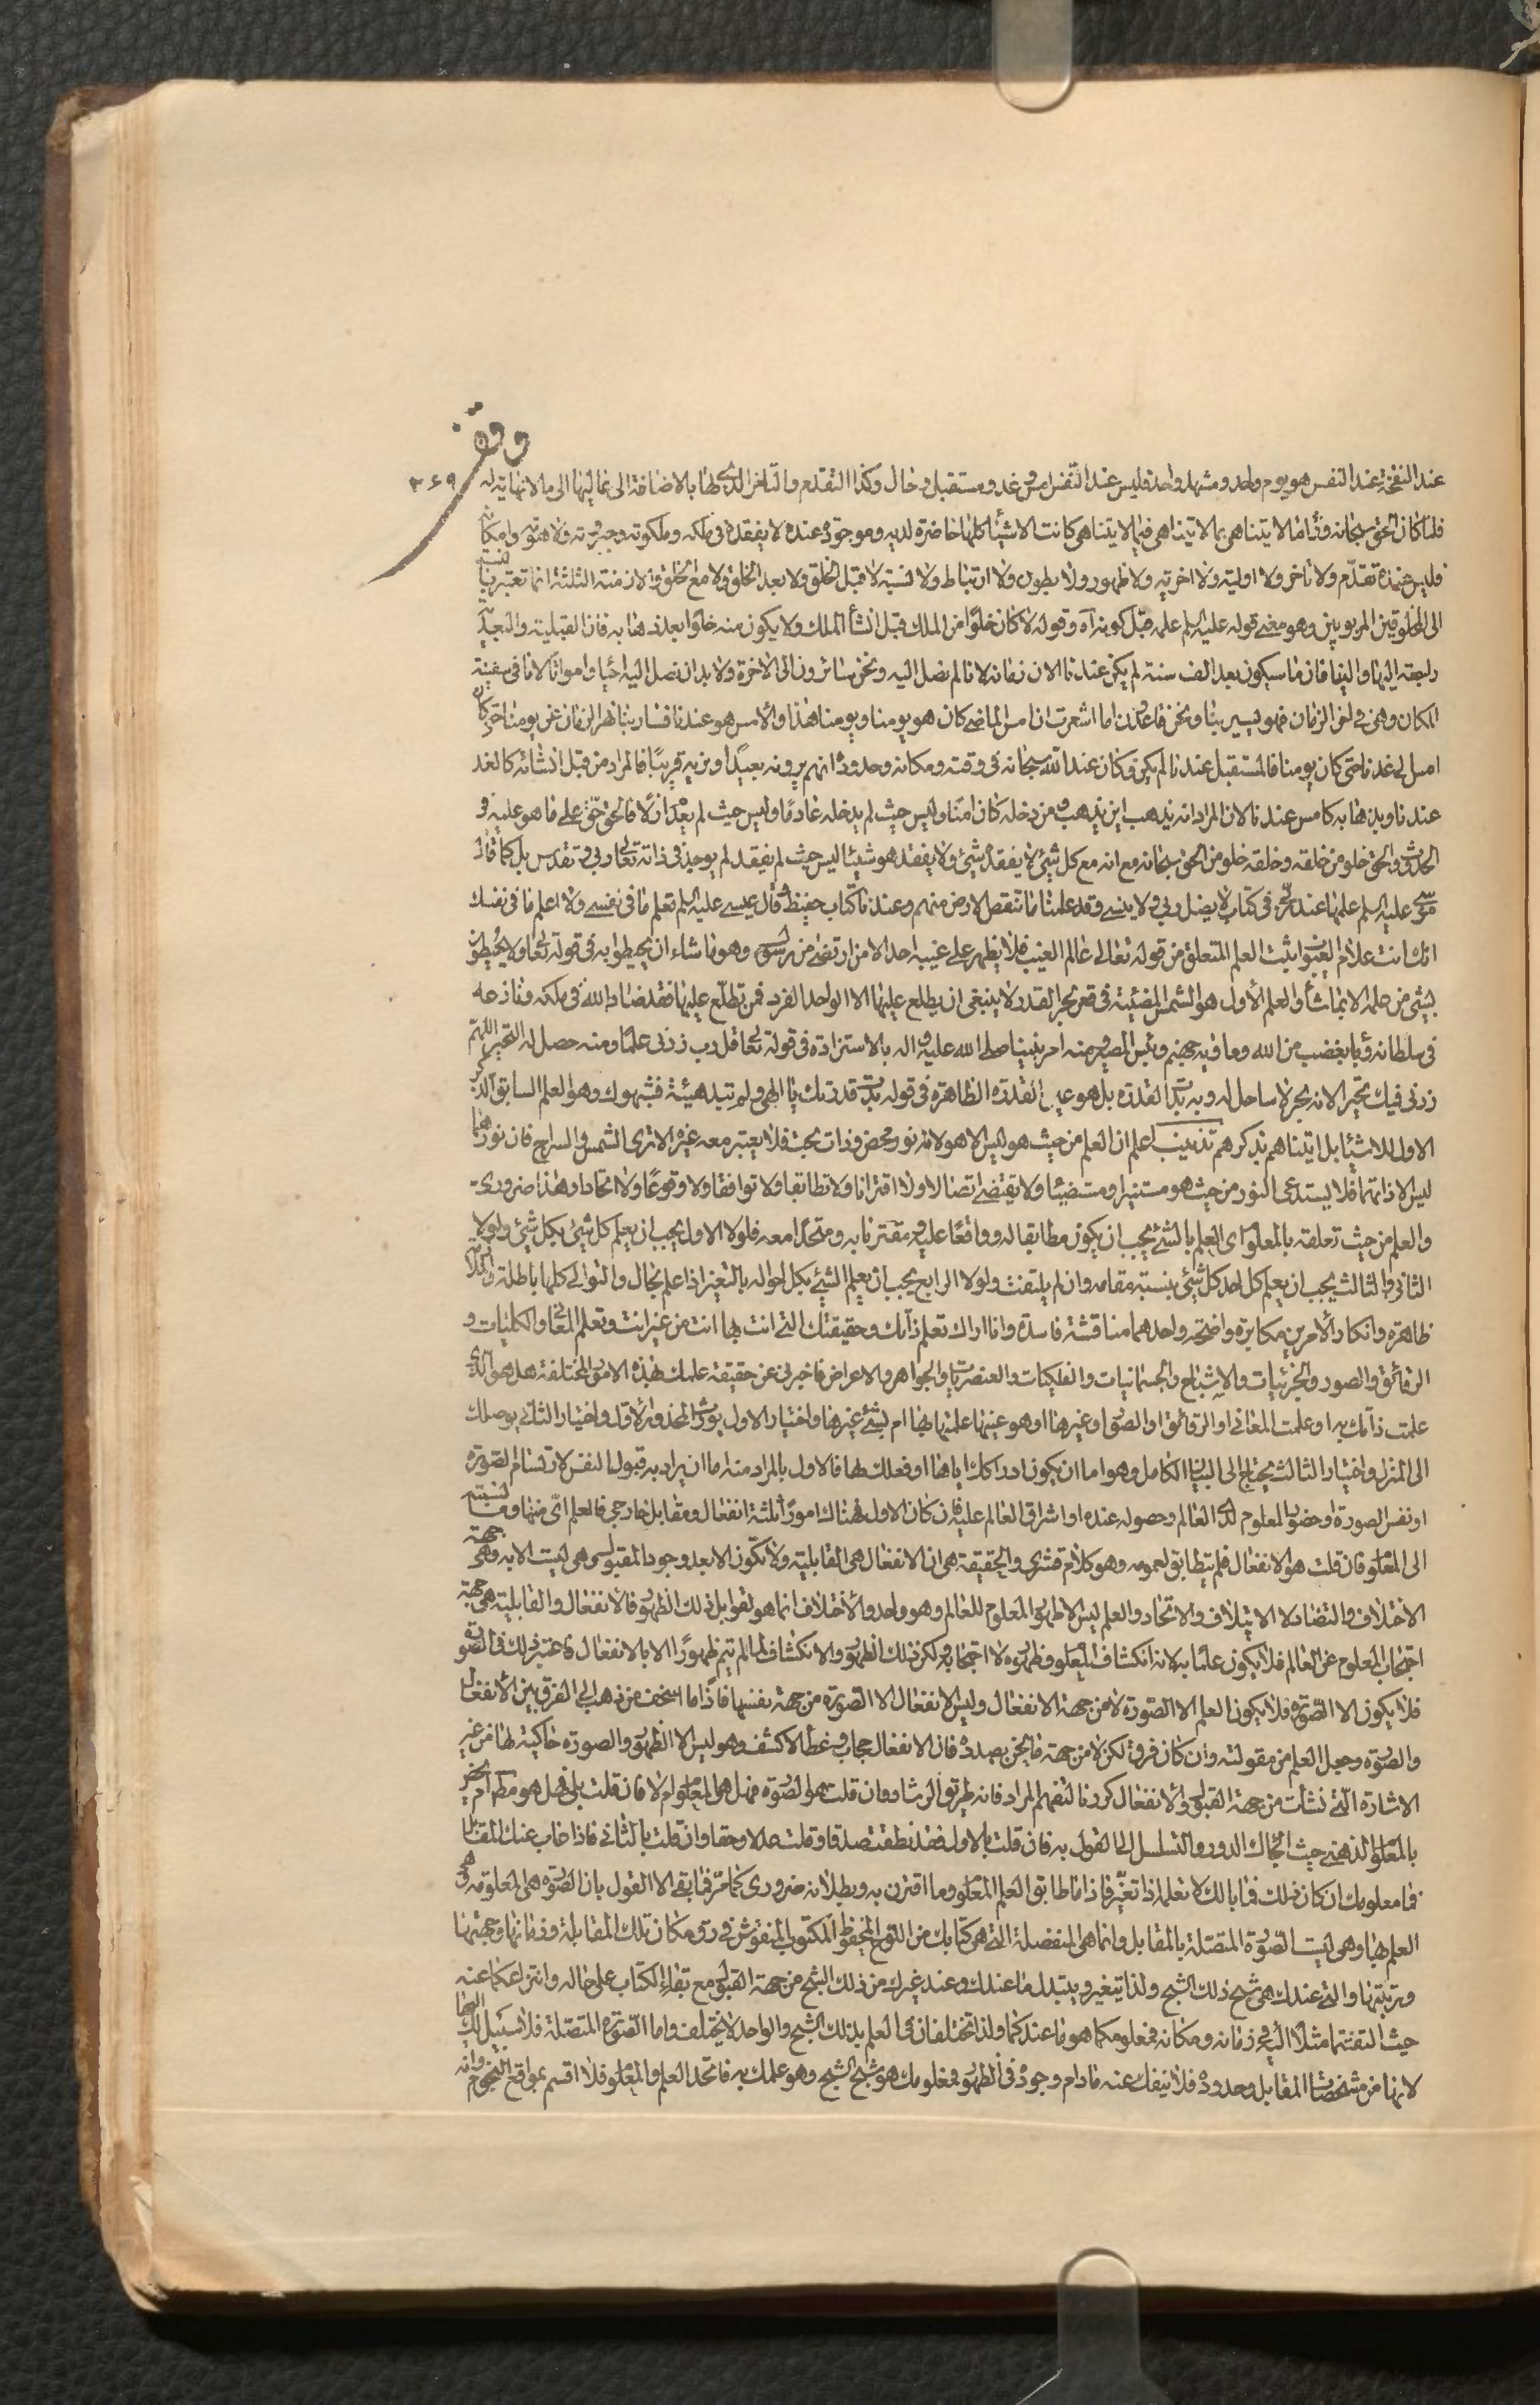 وقف
٣٦٩
عند النفخة عند النفس هو يوم واحد ومشهد واحد وليس عند النفس امس وغد ومستقبل وحال وكذا التقدم والتاخر الذي لها بالاضافة الى نمائيتها الى ما لا نهاية له
فلما كان الحق سبحانه وراء ما لا يتناهى بما لا يتناهى فيما لا يتناهى كانت الاشياء كلها حاضرة لديه وموجودة عنده لا يفقدها في ملكه وملكوته وجبروته ولاهوته وامكانه
فليس عنده تقدم ولا تاخر ولا اولية ولا اخرية ولا ظهور ولا بطون ولا ارتباط ولا نسبة لا قبل الخلق ولا بعد الخلق ولا مع الخلق والازمنة الثلثة انما تعتبر بنسبتها
الى المخلوقين المربوبين وهو معنى قوله عليه السلم علمه قبل كونه آه وقوله لا كان خلوا من الملك قبل انشائه الملك ولا يكون منه خلوا بعد ذهابه فان القبلية والبعدية
راجعة اليها والينا فان ما سيكون بعد الف سنة لم يكن عندنا الان زمانه لانا لم نصل اليه ونحن سائرون الى الاخرة ولا بد ان نصل اليه احياء وامواتا لانا في سفينة
المكان وهي في لجة الزمان فهو يسير بنا ونحن قاعدون اما اشعرت ان امس الماضي كان هو يومنا ويومنا هذا والامس هو عندنا فسار بنا نهر الزمان عن يومنا حتى كان
امس الى غدنا حتى كان يومنا فالمستقبل عندنا لم يكن وكان عند الله سبحانه في وقته ومكانه وحدوده انهم يرونه بعيدا ونريه قريبا فالمراد من قبل انشائه كالغد
عندنا وبذهابه كامس عندنا لان المراد انه يذهب اين يذهب ومن دخله كان امنا وليس حيث لم يدخله عادما وليس حيث لم يعد ازلا فالحق حق على ما هو عليه و
الحدوث والحق خلو من خلقه وخلقه خلو من الحق سبحانه مع انه مع كل شيء لا يفقده شيء ولا يفقد هو شيئا ليس حيث لم يفقد لم يوجد في ذاته تعالى ربي وتقدس بل كما قال
موسى عليه السلم علمها عند ربي في كتاب لا يضل ربي ولا ينسى وقد علمنا ما تنقص الارض منهم وعندنا كتاب حفيظ وقال عيسى عليه السلم تعلم ما في نفسي ولا اعلم ما في نفسك
انك انت علام الغيوب ويثبت العلم المتعلق من قوله تعالى عالم الغيب فلا يظهر على غيبه احدا الا من ارتضى من رسول وهو ما شاء ان يحيطوا به في قوله تعالى ولا يحيطون
بشيء من علمه الا بما شاء والعلم الاول هو الشمس المضيئة في قعر بحر القدر لا ينبغي ان يطلع عليها الا الواحد الفرد فمن تطلع عليها فقد ضاد الله في ملكه ونازعه
في سلطانه وباء بغضب من الله وماويه جهنم وبئس المصير ومنه امر نبينا صلى الله عليه واله بالاستزادة في قوله تعالى قل رب زدني علما ومنه حصل له التحير اللهم
زدني فيك تحيرا لانه بحر لا ساحل له وبه بدت القدرة بل هو عين القدرة الظاهرة في قوله بدت قدرتك يا الهي ولم تبد هيئة فشبهوك وهو العلم السابق الذكر
الاول للاشياء بل اتيناهم بذكرهم تذنيب اعلم ان العلم من حيث هو ليس الا هو لانه نور محض وذات بحت فلا يعتبر معه غيره الا ترى الشمس والسراج فان نورهما
ليس الا ذاتهما فلا يستدعى النور من حيث هو مستنيرا ومستضيئا ولا يقتضى اتصالا ولا اقترانا ولا تطابقا ولا توافقا ولا وقوعا ولا اتحادا وهذا ضروري
والعلم من حيث تعلقه بالمعلوم اى العلم بالشئ يجب ان يكون مطابقا له وواقعا عليه ومقترنا به ومتحدا معه فلولا الاول يجب ان يعلم كل شيء بكل شيء ولولا
الثاني والثالث يجب ان يعلم كل احد كل شيء بنسبة مقامه وان لم يلتفت ولولا الرابع يجب ان يعلم الشيء بكل احواله بالتغير اذا علم بحال والتوالي كلها باطلة والملازمة
ظاهرة وانكار الامرين مكابرة واضحة واحدهما مناقشة فاسدة وانا اراك تعلم ذاتك وحقيقتك التي انت بها انت من غير انت وتعلم المعاني والكليات و
الرقائق والصور والجزئيات والاشباح والجسمانيات والفلكيات والعنصريات والجواهر والاعراض فاخبرني عن حقيقة علمك بهذه الامور المختلفة هل هو الذي
علمت ذاتك به او علمت المعاني او الرقائق او الصور او غيرها او هو عينها علمتها بها ام بشيء غيرها واختيار الاول يورث المحذور الاول واختيار الثاني يوصلك
الى المنزل واختيار الثالث يحتاج الى البيان الكامل وهو اما ان يكون ادراكك اياها او فعلك لها فالاول بالمراد منه اما ان يراد به قبول النفس لارتسام الصورة
او نفس الصورة او حضور المعلوم لدى العالم وحصوله عنده او اشراق العالم عليه فان كان الاول فهناك امورا ثلثة انفعال ومقابل خارجي فالعلم اي منها وما نسبته
الى المعلوم فان قلت هو الانفعال فلم يتطابق لعمومه وهو كلام قشري والحقيقة هي ان الانفعال هي القابلية ولا تكون الا بعد وجود المقبول بل هي ليست الا به وهي جهة
الاختلاف والتضاد لا الايتلاف والاتحاد والعلم ليس الا ظهور المعلوم للعالم وهو واحد والاختلاف انما هو لقوابل ذلك الظهور فالانفعال والقابلية هي جهة
احتجاب المعلوم عن العالم فلا يكون علما به لانه انكشاف المعلوم وظهوره لا احتجابه ولكن ذلك الظهور والانكشاف لما لم يتم ظهورا الا بالانفعال فاعتبر ذلك في الصورة
فلا يكون الا الصورة فلا يكون العلم الا الصورة لا من جهة الانفعال وليس الانفعال الا الصورة من جهة نفسها فاذا ما اسخف من ذهب الى الفرق بين الانفعال
والصورة وجعل العلم من مقولته وان كان فرق لكن لا من جهة ما نحن بصدده فان الانفعال حجاب وغطاء لا كشف وهو ليس الا الظهور والصورة حاكية لها من غير
الاشارة التي نشات من جهة القبول والانفعال كررنا لتفهم المراد فانه طريق الرشاد وان قلت هو الصورة فهل هي المعلوم ام لا فان قلت بلى فهل هو معلوم ام بغير
بالمعلوم الذهني حيث الجاك الدور والتسلسل الى القول به فان قلت بالاول فقد نطقت صدقا وقلت عدلا وحقا وان قلت بالثاني فاذا غاب عنك المقابل
فما معلومك ان كان ذلك فما بالك لا تعلمه اذا تغير فاذا ما طابق العلم المعلوم وما اقترن به وبطلانه ضروري كما مر فما بقي الا القول بان الصورة هي المعلومة وهي
العلم بها وهي ليست الصورة المتصلة بالمقابل وانما هي المنفصلة التي هي كتابك من اللوح المحفوظ المكتوب المنقوش في رق مكان تلك المقابلة وزمانها وجهتها
ورتبتها والتي عندك هي شبح ذلك الشبح ولذا يتغير ويتبدل ما عندك وعند غيرك من ذلك الشبح من جهة القبول مع بقاء الكتاب على حاله وانتزاعكما عنه
حيث التفتما مثلا اليه في زمانه ومكانه فمعلومكما هو ما عندكما ولذا تختلفان في العلم بذلك الشبح والواحد لا يختلف واما الصورة المتصلة فلا سبيل لك اليها
لانها من مشخصات المقابل وحدوده فلا ينفك عنه ما دام وجوده في الظهور فمعلومك هو شبح الشبح وهو علمك به فاتحد العلم والمعلوم فلا اقسم بمواقع النجوم وانه